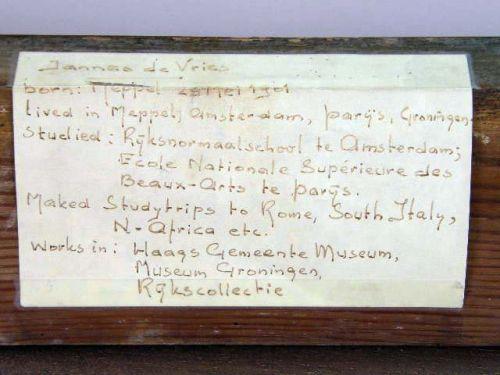 Jannes de Vries
born: Meppel 25 Mei 1901
Lived in Meppel, Amsterdam, Parijs, Groningen.
Studied: Rijksnormaalschool te Amsterdam;
Ecole Nationale Supérieure des
Beaux-Arts te Parijs.
Maked Studytrips to Rome, South Italy,
N-Africa etc.
Works in: Haags Gemeente Museum,
Museum Groningen,
Rijkscollectie